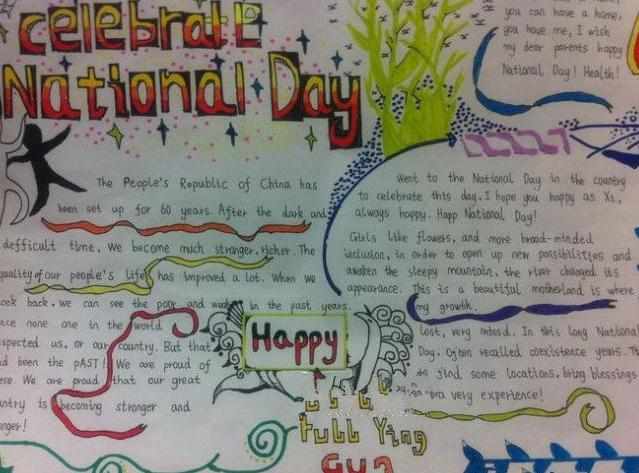 celebrate
National Day
you can have a home,
you have me, I wish
my dear parents happy
National Day! Health!
The People's Republic of China has
been set up for 60 years. After the dark and
defficult time, we become much stronger, richer. The
quality of our people's life has improved a lot. When we
back, we can see the poor and in the past years.
none one in the world
us, or our country. But that
been the pAST! We are proud of
We are proud that our great
is becoming stronger and
went to the National Day in the country
to celebrate this day. I hope you happy as Xs,
always happy. Happ National Day!
Girls like flowers, and more broad-minded
inclusion, in order to open up new possibilities and
awaken the sleepy mountain, the river changed its
appearance. This is a beautiful motherland is where
my growth.
lost, very missed. In this long National
Day. Often recalled coexistence years. Th
find some locations, bring blessings
very experience!
Happy
Full Ying
Gua